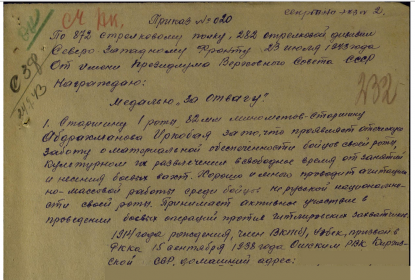 секретно экз 2.
Приказ № 020
По 872 стрелковому полку, 282 стрелковой дивизии
Северо Западному Фронту 23 июля 1943 года
От имени Президиума Верховного Совета СССР
Награждаю:
332
Медалью "За отвагу"
1. Старшину 1 роты 82мм минометов-старшину
Абдрахманова за то, что проявляет отеческую
заботу о материальной обеспеченности бойцов своей роты,
культурном их развлечении в свободное время от занятий
и несения боевых вахт. Хорошо и умело проводит агитацион-
но-массовой работы среди бойцов не русской национально-
сти своей роты. Принимает активное участие в
проведении боевых операций против гитлеровских захватчиков
1914 года рождения, член ВКП(б), узбек, призван в
РККА 15 сентября 1938 года Ошским РВК Кирги-
ской ССР, домашний адрес: